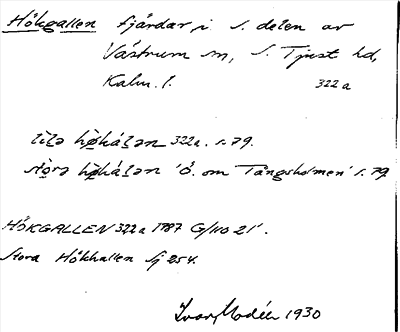 Hökgallen fjärdar i S. delen av
Västrum sn, S. Tjust hd,
Kalm. l. 322 a
lı̇lə hø̀kálən 322a. s. 79.
stòrə hø̀kálən 'Ö. om Tångsholmen' s. 79.
HÖKGALLEN 322a 1787 G/110 21'.
Stora Hökhallen Sj 254.
Ivar Modéer 1930